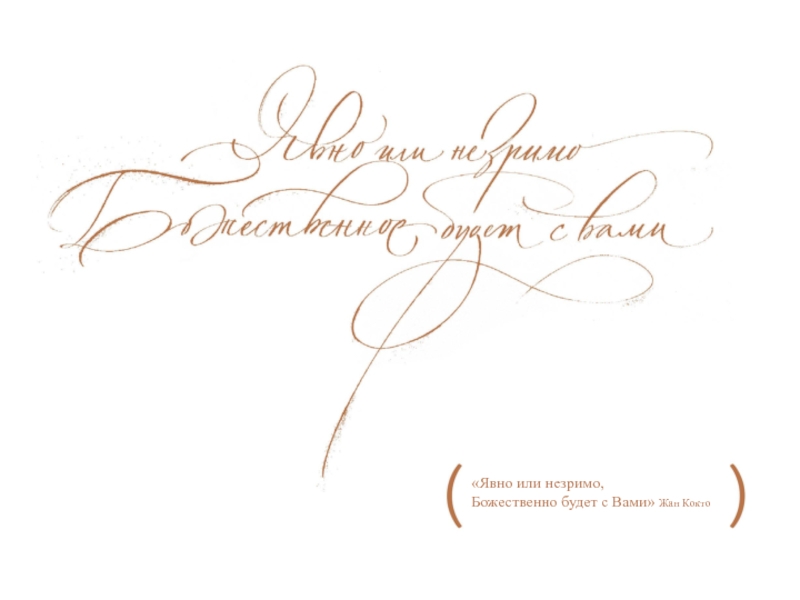 Явно или незримо
Божественное будет с вами
«Явно или незримо,
Божественно будет с Вами» Жан Кокто